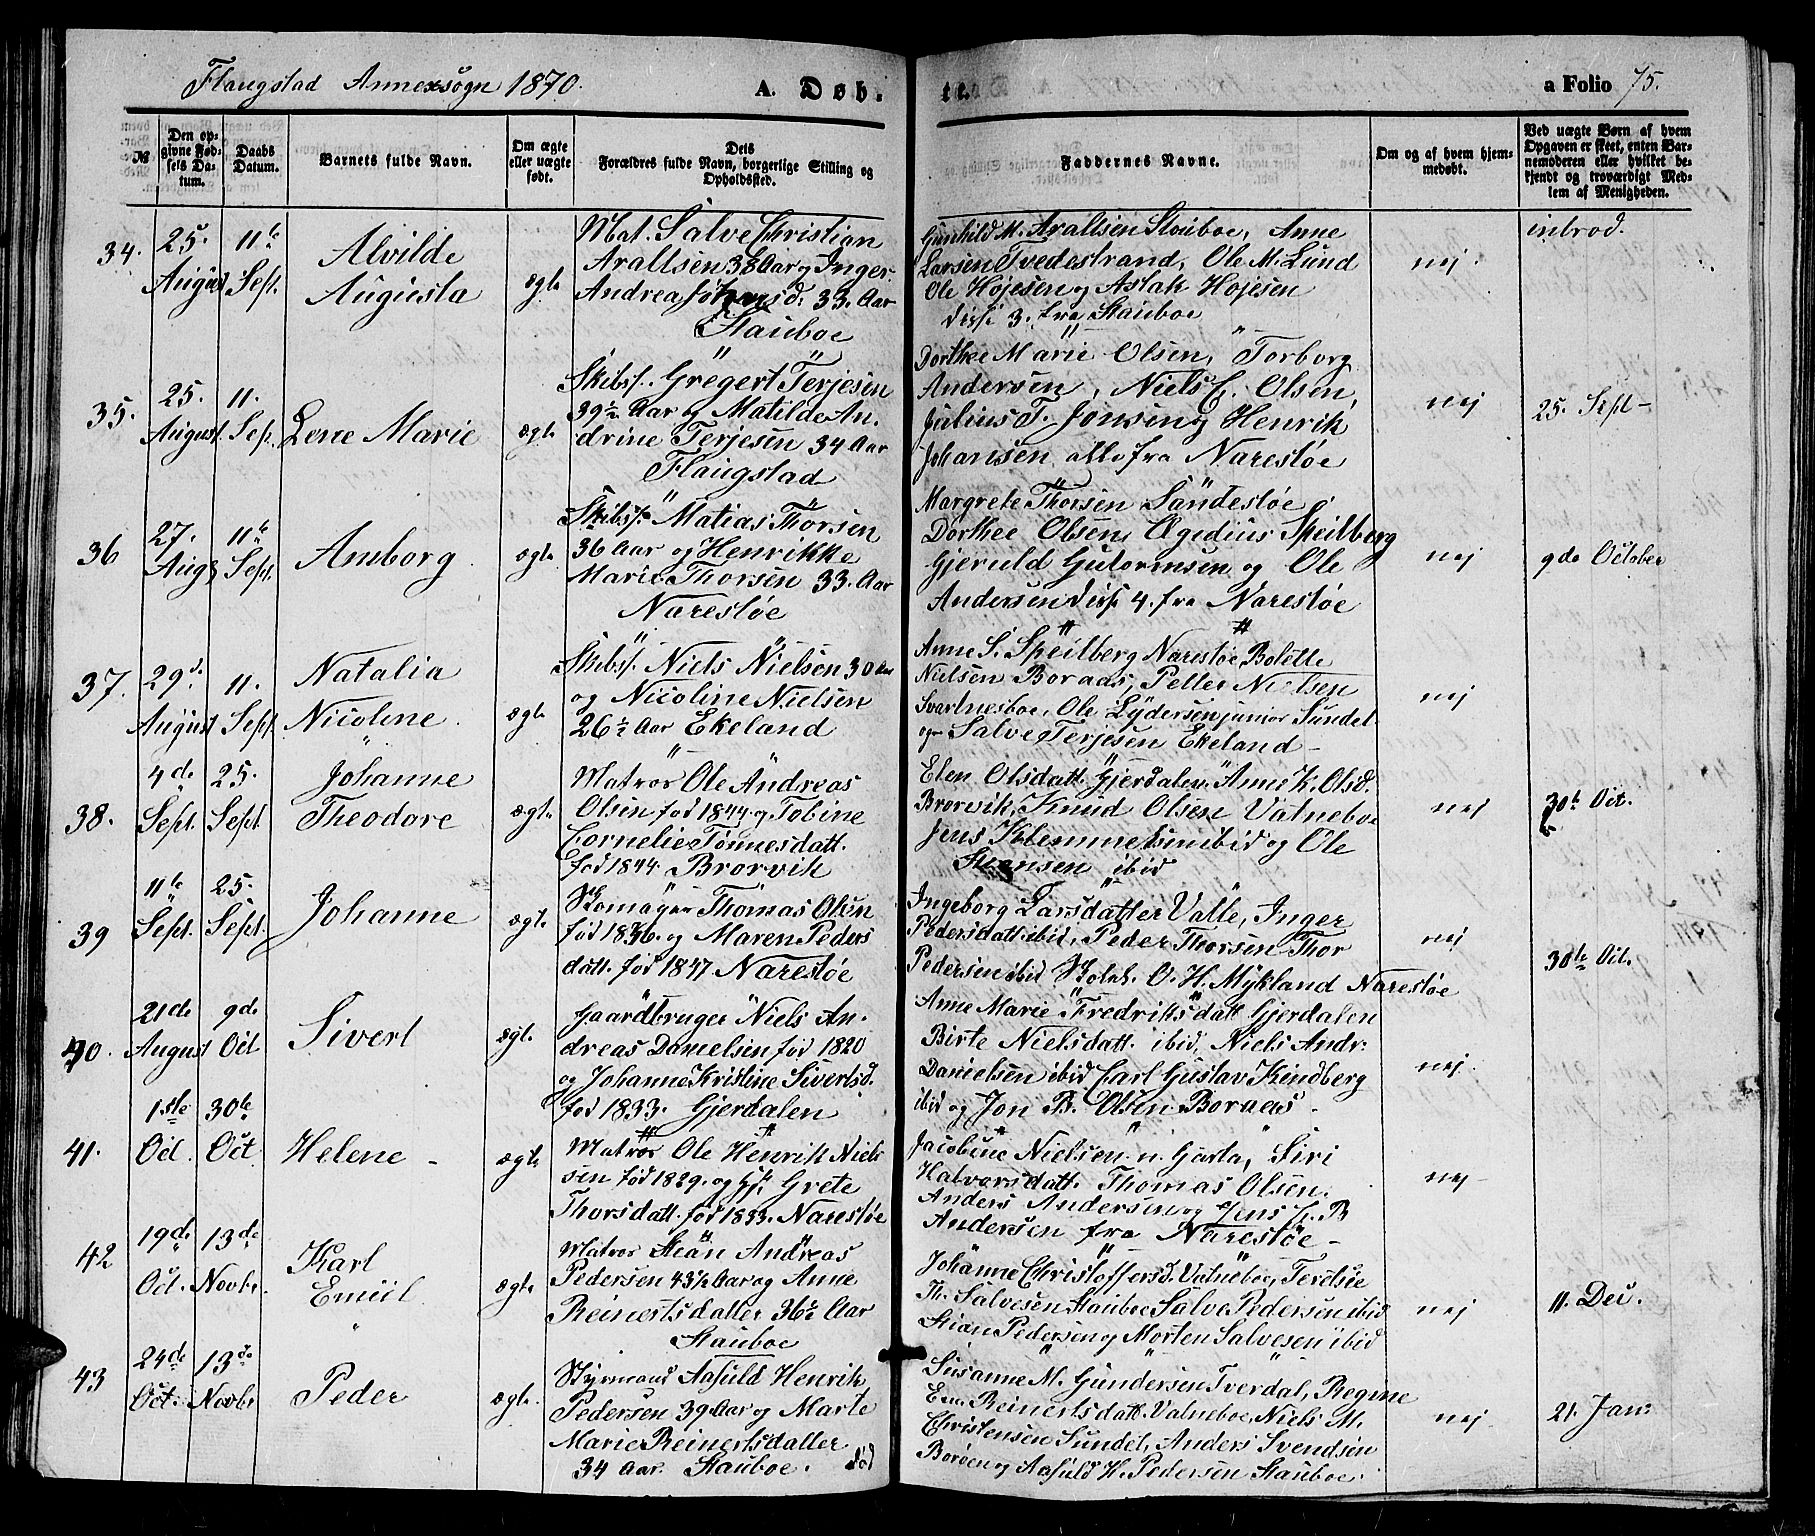 Flaugstad Annexsogn 1870. A. Døb. te. a Folio 75.
№
Den op-
givne Fød-
sels Da-
tum.
Daabs
Datum.
Barnets fulde Navn.
Om ægte
eller uægte
født.
Dets
Forældres fulde Navn, borgerlige Stilling og
Opholdssted.
Faddernes Navne.
Om og af hvem hjem-
medøbt.
Ved uægte Børn af hvem
Opgaven er skeet, enten Bar-
nemoderen eller hvilket be-
kjendt og troværdigt Med-
lem af Menigheden.
34.
25.
August
11te
Sept.
Alvilde
Augusta
ægte
Mat. Salve Christian
Arallsen 38 Aar og Inger
Andrea 33. Aar
Stauboe
Gunhild M. Arallsen Stauboe, Anne
Larsen Tvedestrand, Ole M. Lund
Ole Hojesen og Aslak Hojesen
disse 3. fra Stauboe
nej.
introd.
35.
25.
August
11.
Sept.
Lene Marie
ægte
Skibsf. Gregert Terjesen
39½ Aar og Matilde An-
drine Terjesen 34 Aar
Flaugstad
Dorthee Marie Olsen, Torborg
Andersen, Niels C. Olsen,
Julius T. Jonsen og Henrik
Johansen alle fra Narestøe
nej
25. Sept-
36
27.
Aug
11te
Sept.
Amborg
ægte
Skibsf. Matias Thorsen
36 Aar og Henrikke
Marie Thorsen 33. Aar
Narestøe
Margrete Thorsen Sandestøe
Dorthee Olsen, Ægedius Speilberg
Gjeruld Gutormsen og Ole
Andersen disse 4. fra Narestøe
nej
9de October
37.
29d.
August
11.
Sept.
Natalia
Nicoline
ægte
Skibsf. Niels Nielsen 30 Aar
og Nicoline Nielsen
26½ Aar Ekeland
Anne S. Speilberg Narestøe, Bolette
Nielsen Boraas, Peller Nielsen
Svartnesboe, Ole Lydersen junior Sundet
og Salve Terjesen Ekeland-
nej
38.
4de
Sept.
25.
Sept.
Johanne
Theodore
ægte
Matros Ole Andreas
Olsen fød 1844 og Tobine
Cornelie Tønnesdatt.
fød 1844 Brorvik
Elen Olsdatt. Gjerdalen, Anne K. Olsd.
Brorvik, Knud Olsen Vatneboe
Jens Klemmetsen ibid og Ole
ibid
nej
30te Oct.
39
11te
Sept.
25.
Sept.
Johanne
ægte
Skomager Thomas Olsen
fød 1836. og Maren Peders
datt. fød 1847 Narestøe
Ingeborg Larsdatter Valle, Inger
Pedersdatt. ibid, Peder Thorsen Thor
Pedersen ibid O. H. Mykland Narestøe
nej
30te Oct.
40.
21de
August
9de
Oct
Sivert
ægte
Gaardbruger Niels An-
dreas Danielsen fød 1820
og Johanne Kristine Sivertsd.
fød 1833. Gjerdalen
Anne Marie Fredriksdatt Gjerdalen
Birte Nielsdatt. ibid, Niels Andr.
Danielsen ibid Carl Gustav Kindberg
ibid og Jon B. Olsen Boraas.
nej.
41.
1ste
Oct.
30te
Oct
Helene -
ægte
Matros Ole Henrik Niels
sen fød 1829. og H. Grete
Thorsdatt. fød 1833. Narestøe
Jacobine Nielsen n. Garta, Siri
Halvorsdatt. Thomas Olsen.
Anders Andersen og Jens L. B
Andersen fra Narestøe-
nej
42
19de
Oct.
13de
Novbr.
Karl
Emiil
ægte
Matros Stian Andreas
Pedersen 43½ Aar og Anne
Reinertsdatter 36½ Aar
Stauboe
Johanne Christoffersd. Vatneboe, Terelsie
Th. Salvesen Stauboe Salve Pedersen ibid
Stian Pedersen og Morten Salvesen ibid
nej
11. Dec.
43
24de
Oct.
13de
Novbr.
Peder
ægte
Styrmand Aasuld Henrik
Pedersen 39. Aar og Marte
Marie Reinertsdatter
34 Aar. Stauboe. død
Susanne M. Gundersen Tverdal, Regine
Em. Reinertsdatt. Vatneboe, Niels M.
Christensen Sundet, Anders Svendsen
Borøen og Aasuld H. Pedersen Stauboe.
nej
21. Jan.